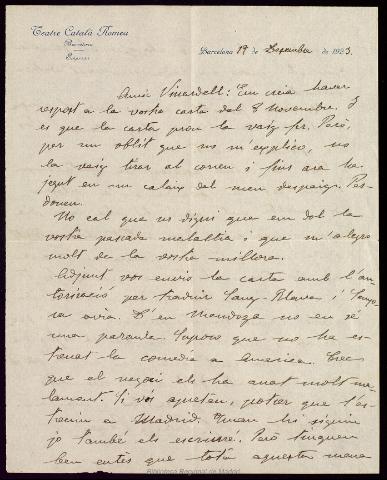 Teatre Català Romea
Barcelona
Empresa
Barcelona 19 de Desembre de 1923.
Amic Vinardell: Em creia haver
respost a la vostra carta del 8 Novembre. I
es que la carta prou la vaig fer. Però,
per un oblit que no m'explico, no
la vaig tirar al correu i fins ara ha
jegut en un calaix del meu despaig. Per-
doneu.
No cal que us digui que em dol la
vostra passada malaltia i que m'alegro
molt de la vostra millora.
Adjunt vos envio la carta amb l'au-
torisació per traduir Sang-Blava i
avia. D'en Mendoza no en sé
una paraula. Suposo que no ha es-
trenat la comedia a America. Crec
que el negoci els ha anat molt ma-
lament. Si vos aneu, potser que l'es-
trenin a Madrid. Quan hi siguin
jo també els escriuré. Però tinguem
ben entès que tota aquesta mena
Biblioteca Regional de Madrid